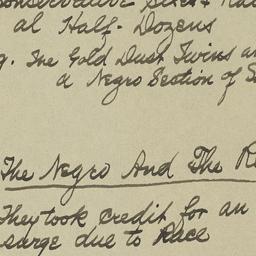 al Half-Dozens
g. The Gold Dust Twins
a Negro Section of
The Negro And The
They took credit for an
surge due to Race